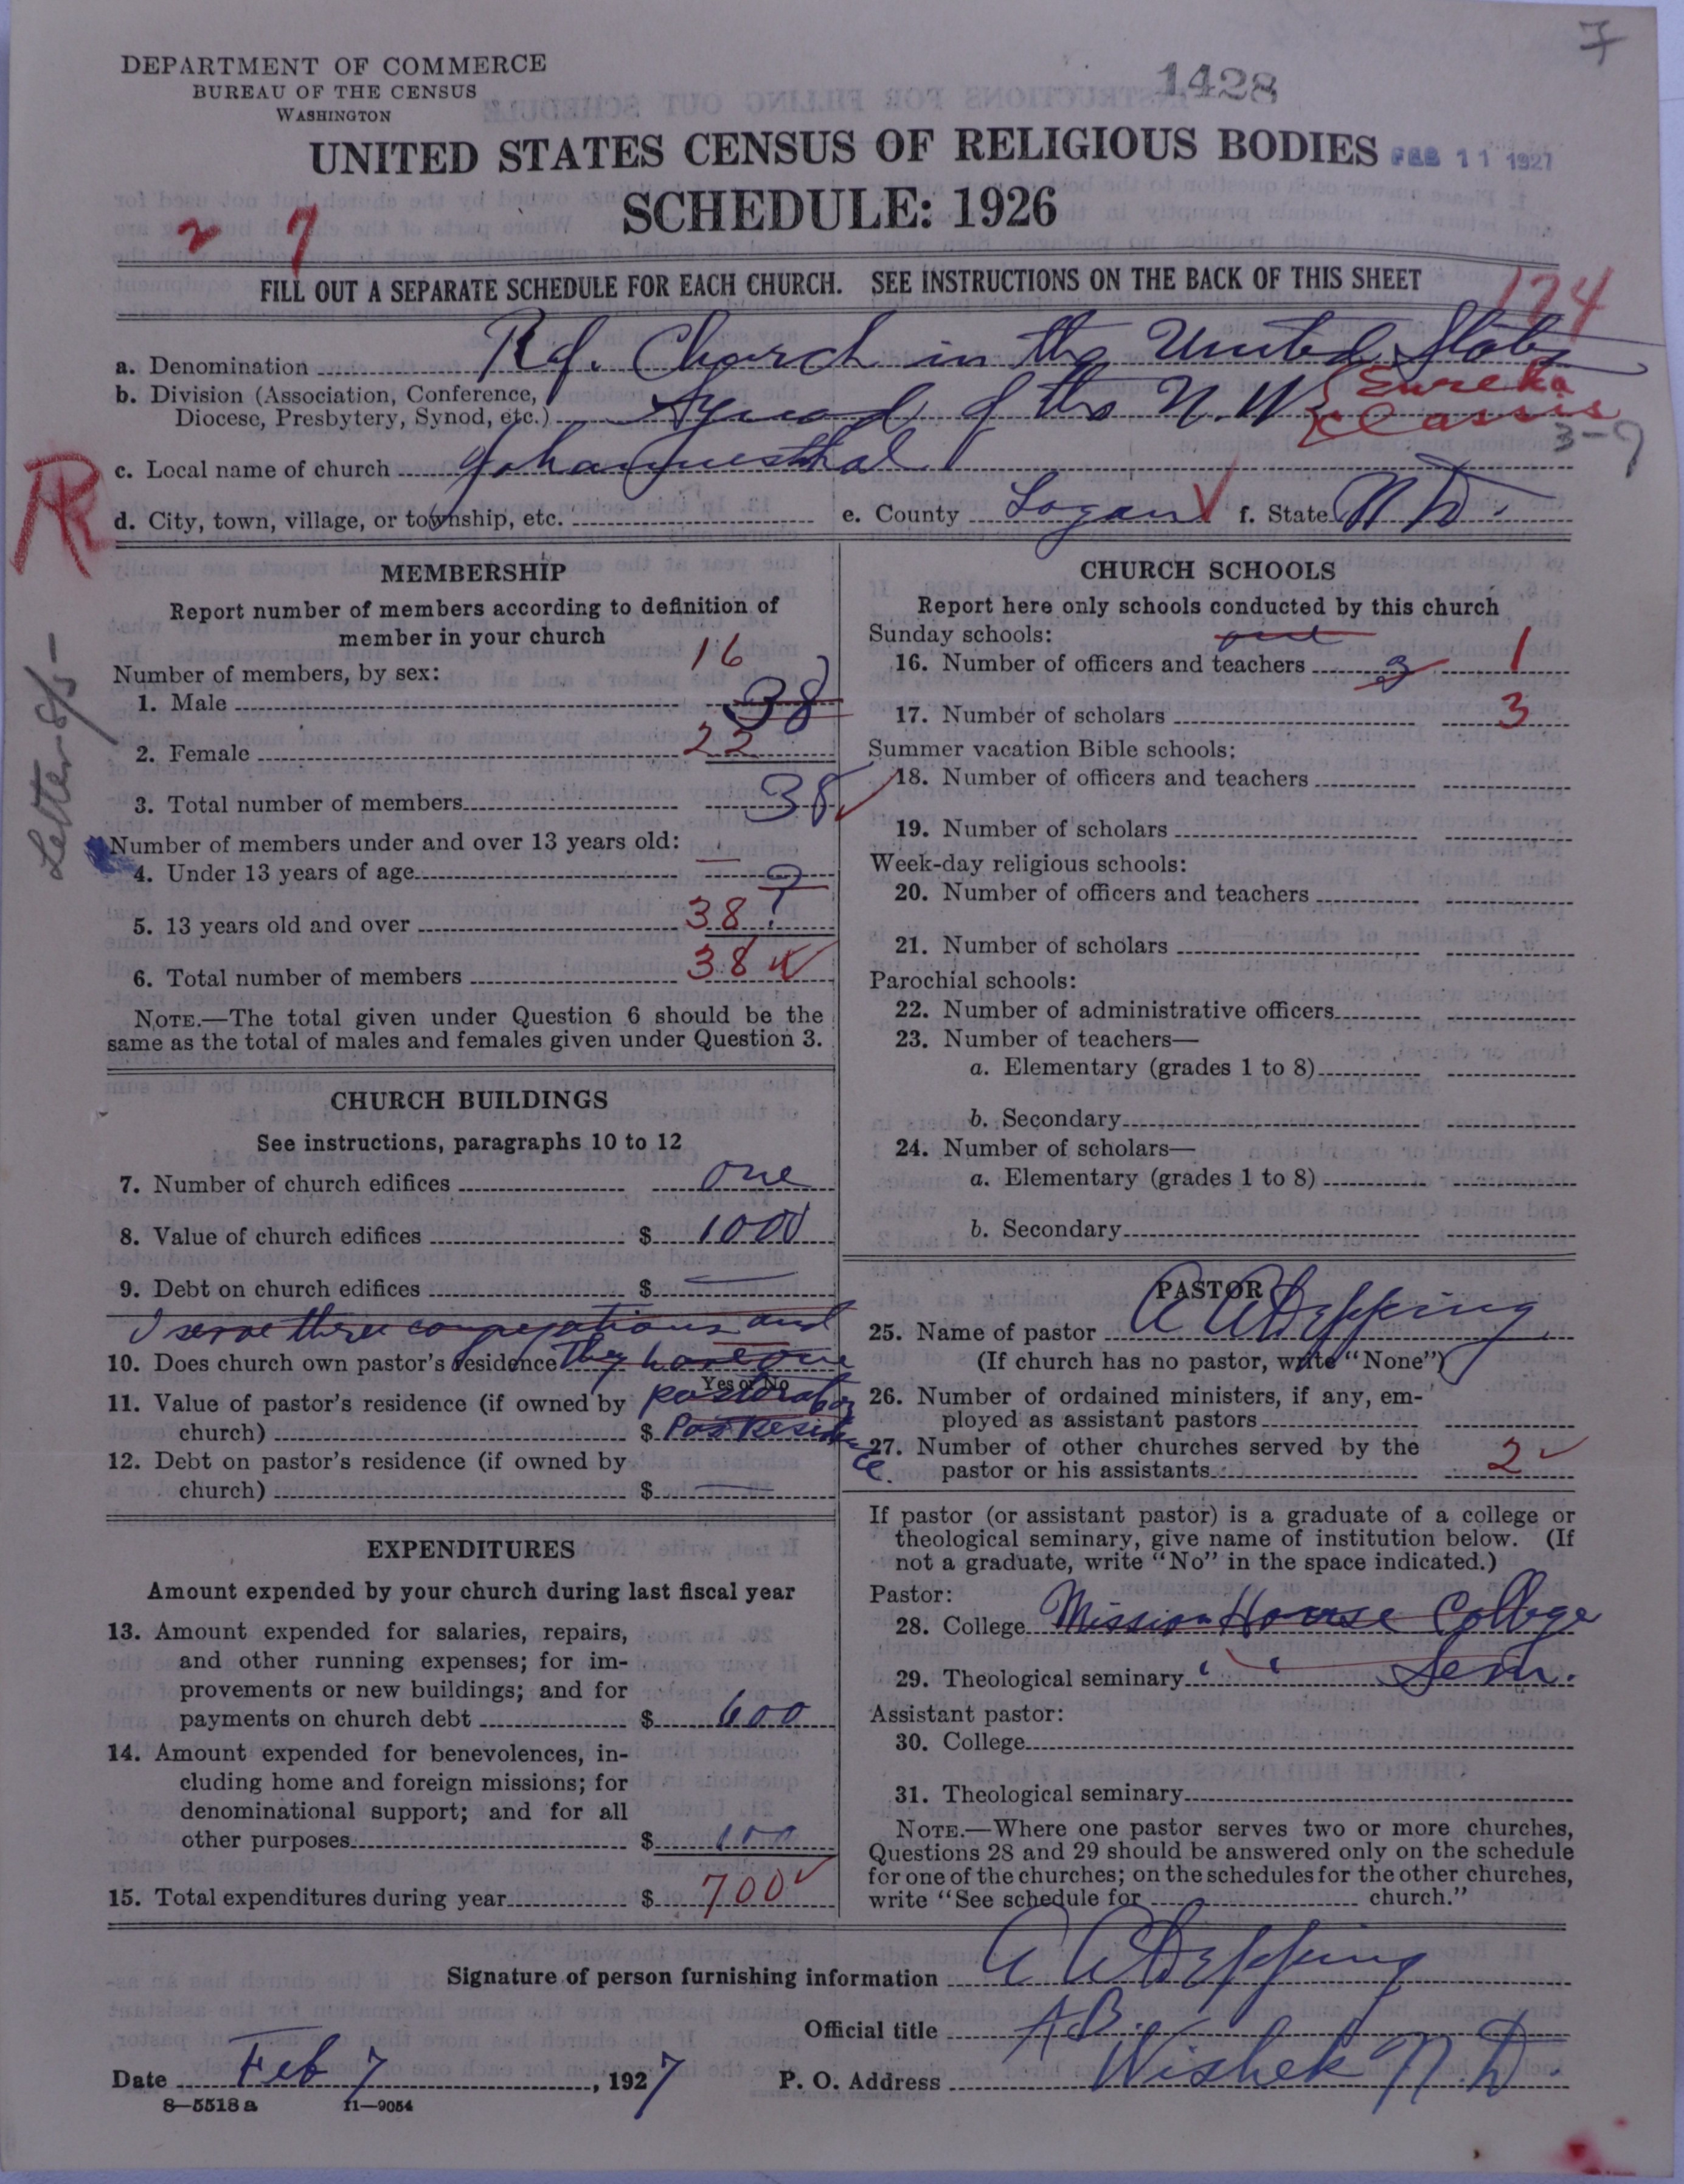 7
DEPARTMENT OF COMMERCE
BUREAU OF THE CENSUS
WASHINGTON
1428
UNITED STATES CENSUS OF RELIGIOUS BODIES
FEB 11 1927
SCHEDULE: 1926
2 7
FILL OUT A SEPARATE SCHEDULE FOR EACH CHURCH. SEE INSTRUCTIONS ON THE BACK OF THIS SHEET
174
a. Denomination Ref. Church in the United States
b. Division (Association, Conference,
Diocese, Presbytery, Synod, etc.) Synod of the N.W. { Eureka
Classis
3-9
c. Local name of church Johannesthal
d. City, town, village, or township, etc. e. County Logan f. State N D.
Letter 8/5-
MEMBERSHIP
Report number of members according to definition of
member in your church
Number of members, by sex:
16
1. Male 38
2. Female 22
3. Total number of members 38
Number of members under and over 13 years old:
4. Under 13 years of age — ?
5. 13 years old and over 38 ?
6. Total number of members 38
NOTE.—The total given under Question 6 should be the
same as the total of males and females given under Question 3.
CHURCH BUILDINGS
See instructions, paragraphs 10 to 12
7. Number of church edifices one
8. Value of church edifices $ 1000
9. Debt on church edifices $ —
I serve three congregations and
10. Does church own pastor's residence They have one
Yes or No
11. Value of pastor's residence (if owned by
church) $ Residence
12. Debt on pastor's residence (if owned by
church) $ —
EXPENDITURES
Amount expended by your church during last fiscal year
13. Amount expended for salaries, repairs,
and other running expenses; for im-
provements or new buildings; and for
payments on church debt $ 600
14. Amount expended for benevolences, in-
cluding home and foreign missions; for
denominational support; and for all
other purposes $ 100
15. Total expenditures during year $ 700
CHURCH SCHOOLS
Report here only schools conducted by this church
Sunday schools: one
16. Number of officers and teachers 3 1
17. Number of scholars 3
Summer vacation Bible schools:
18. Number of officers and teachers
19. Number of scholars
Week-day religious schools:
20. Number of officers and teachers
21. Number of scholars
Parochial schools:
22. Number of administrative officers
23. Number of teachers—
a. Elementary (grades 1 to 8)
b. Secondary
24. Number of scholars—
a. Elementary (grades 1 to 8)
b. Secondary
PASTOR
25. Name of pastor A A Depping
(If church has no pastor, write "None")
26. Number of ordained ministers, if any, em-
ployed as assistant pastors
27. Number of other churches served by the
pastor or his assistants 2
If pastor (or assistant pastor) is a graduate of a college or
theological seminary, give name of institution below. (If
not a graduate, write "No" in the space indicated.)
Pastor:
28. College Mission House College
29. Theological seminary " " Sem.
Assistant pastor:
30. College
31. Theological seminary
NOTE.—Where one pastor serves two or more churches,
Questions 28 and 29 should be answered only on the schedule
for one of the churches; on the schedules for the other churches,
write "See schedule for church."
Signature of person furnishing information A A Depping
Official title A.B.
Date Feb 7, 1927 P. O. Address Wishek N.D.
8—5518 a 11—9054